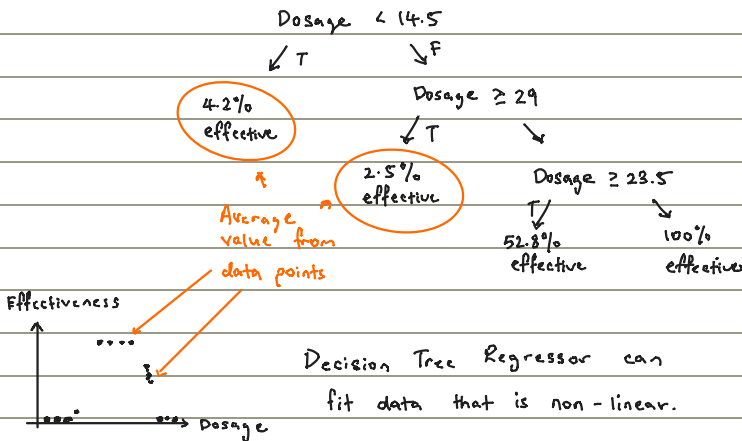 Dosage < 14.5
T F
4.2% effective
Dosage ≥ 29
T
2.5% effective
Dosage ≥ 23.5
T
52.8% effective
100% effective
Average
value from
data points
Effectiveness
Dosage
Decision Tree Regressor can
fit data that is non-linear.